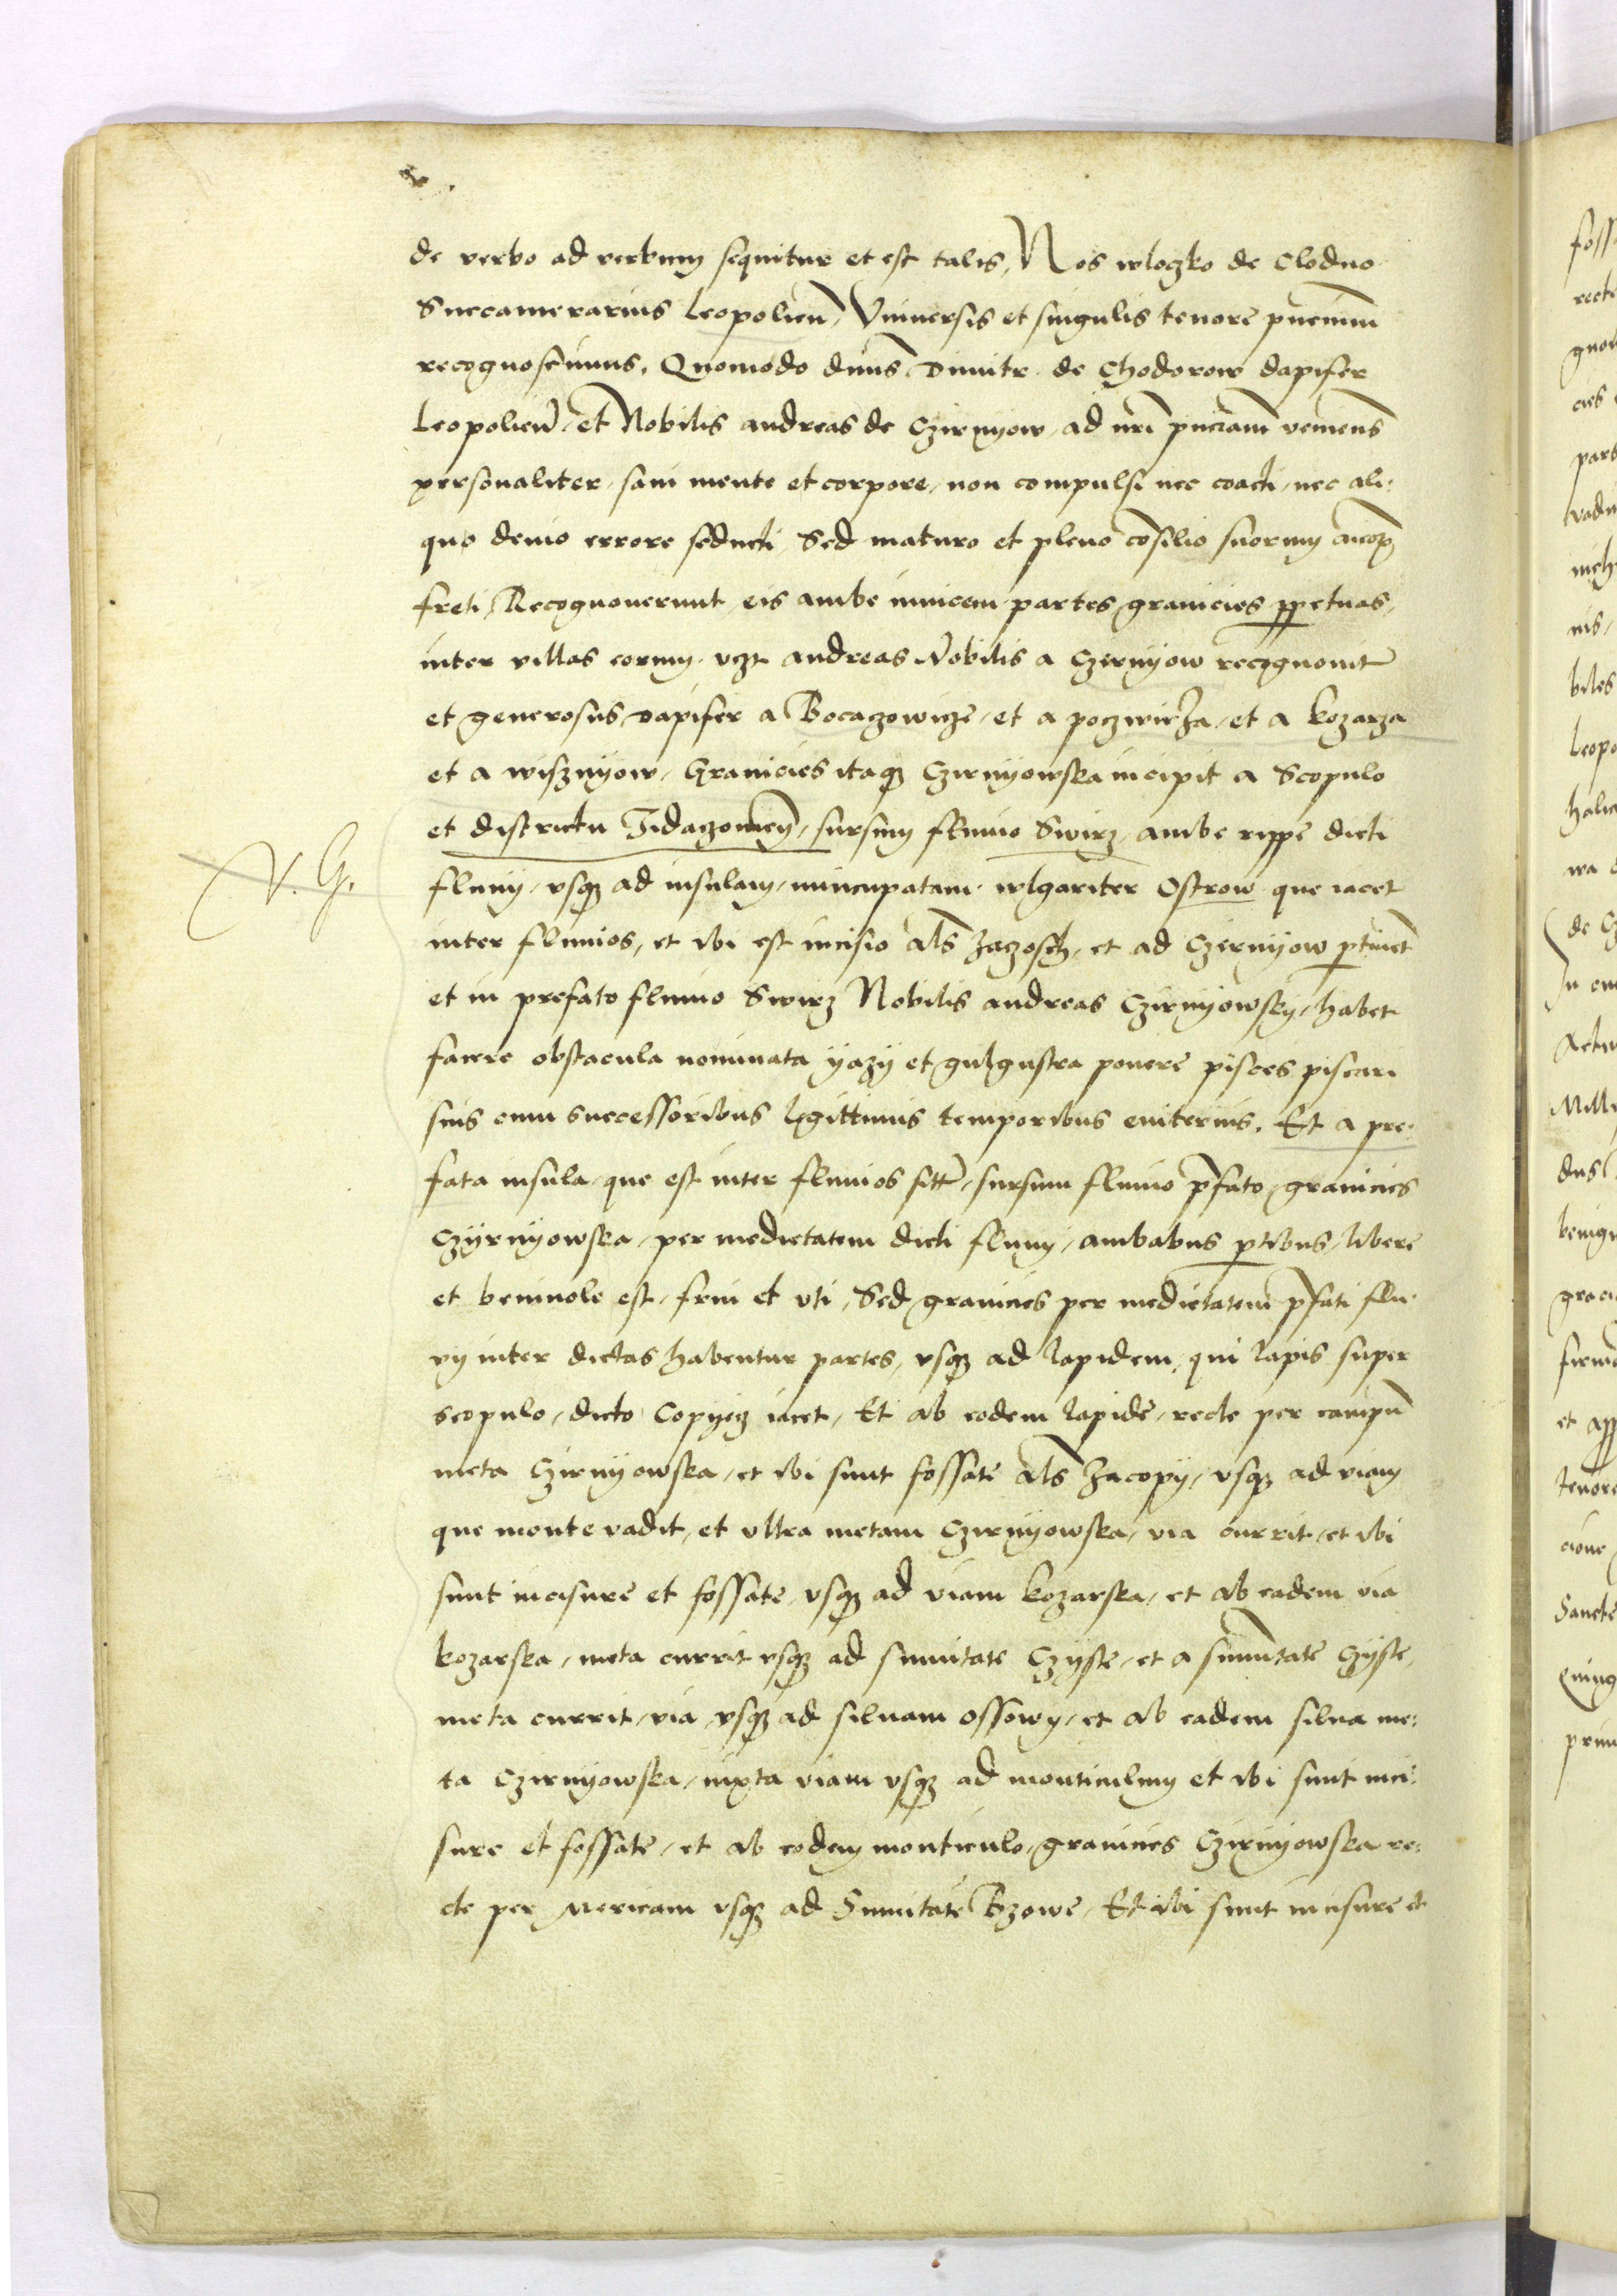 de verbo ad verbum sequitur et est talis, Nos wloczko de Clodno
Succamerarius Leopolien̄, Vniuersis et singulis tenore pn̄cium
recognoscimus, Quomodo dn̄us Dimitr de Chodorow dapifer
Leopolien̄, et Nobilis andreas de Czirnyow, ad nr̄i pn̄ciam veniens
personaliter, sani mente et corpore, non compulsi nec coacti, nec ali:
quo deuio errore seducti, Sed maturo et pleno cōsilio suorum
freti, Recognouerunt eis ambe inuicem partes granicies ppetuas,
inter villas eorum vcz andreas Nobilis a Czernyow recognouit
et generosus Dapifer a Boczaczowicze, et a poczwirza, et a kozarza
et a wisznyow, Granicies itaqz Czirnyowska incipit a Scopulo
et districtu Zidaczouien̄, sursum fluuio Swirz, ambe rippe dicti
V. G.
fluuy, vsqz ad insulam, nuncupatam wlgariter Ostrow que iacet
inter fluuios, et ibi est incisio al̄s Zaczosch, et ad Czirnyow ptinet
et in prefato fluuio Swirz Nobilis andreas Czirnyowsky, habet
facere obstacula nominata yazy et gulgustra ponere pisces piscari
suis cum successoribus legittimis temporibus euiternis. Et a pre:
fata insula, que est inter fluuios sitt̄, sursum fluuio pfato, granicies
Czyrnyowska, per medietatem dicti fluuy, ambabus ptibus, libere
et beniuole est, frui et vti, Sed granicies per medietatem pfati flu:
vy inter dictas habentur partes, vsqz ad lapidem, qui lapis super
scopulo, dicto Copyecz iacet, Et ab eodem lapide, recte per campū
meta Czirnyowska, et ibi sunt fossate al̄s Zacopy, vsqz ad viam
que monte vadit, et vltra metam Czirnyowska, via currit, et ibi
sunt incisure et fossate, vsqz ad viam kozarska, et ab eadem via
kozarska, meta currit vsqz ad sumitate Czyste, et a sumitate Czyste,
meta currit, via vsqz ad siluam ossowy, et ab eadem silua me:
ta Czirnyowska, iuxta viam vsqz ad monticulum et ibi sunt inci:
sure et fossate, et ab eodem monticulo, granicies Czirnyowska re:
cte per Mericam vsqz ad Sumitate Bzowe, Et ibi sunt incisure et